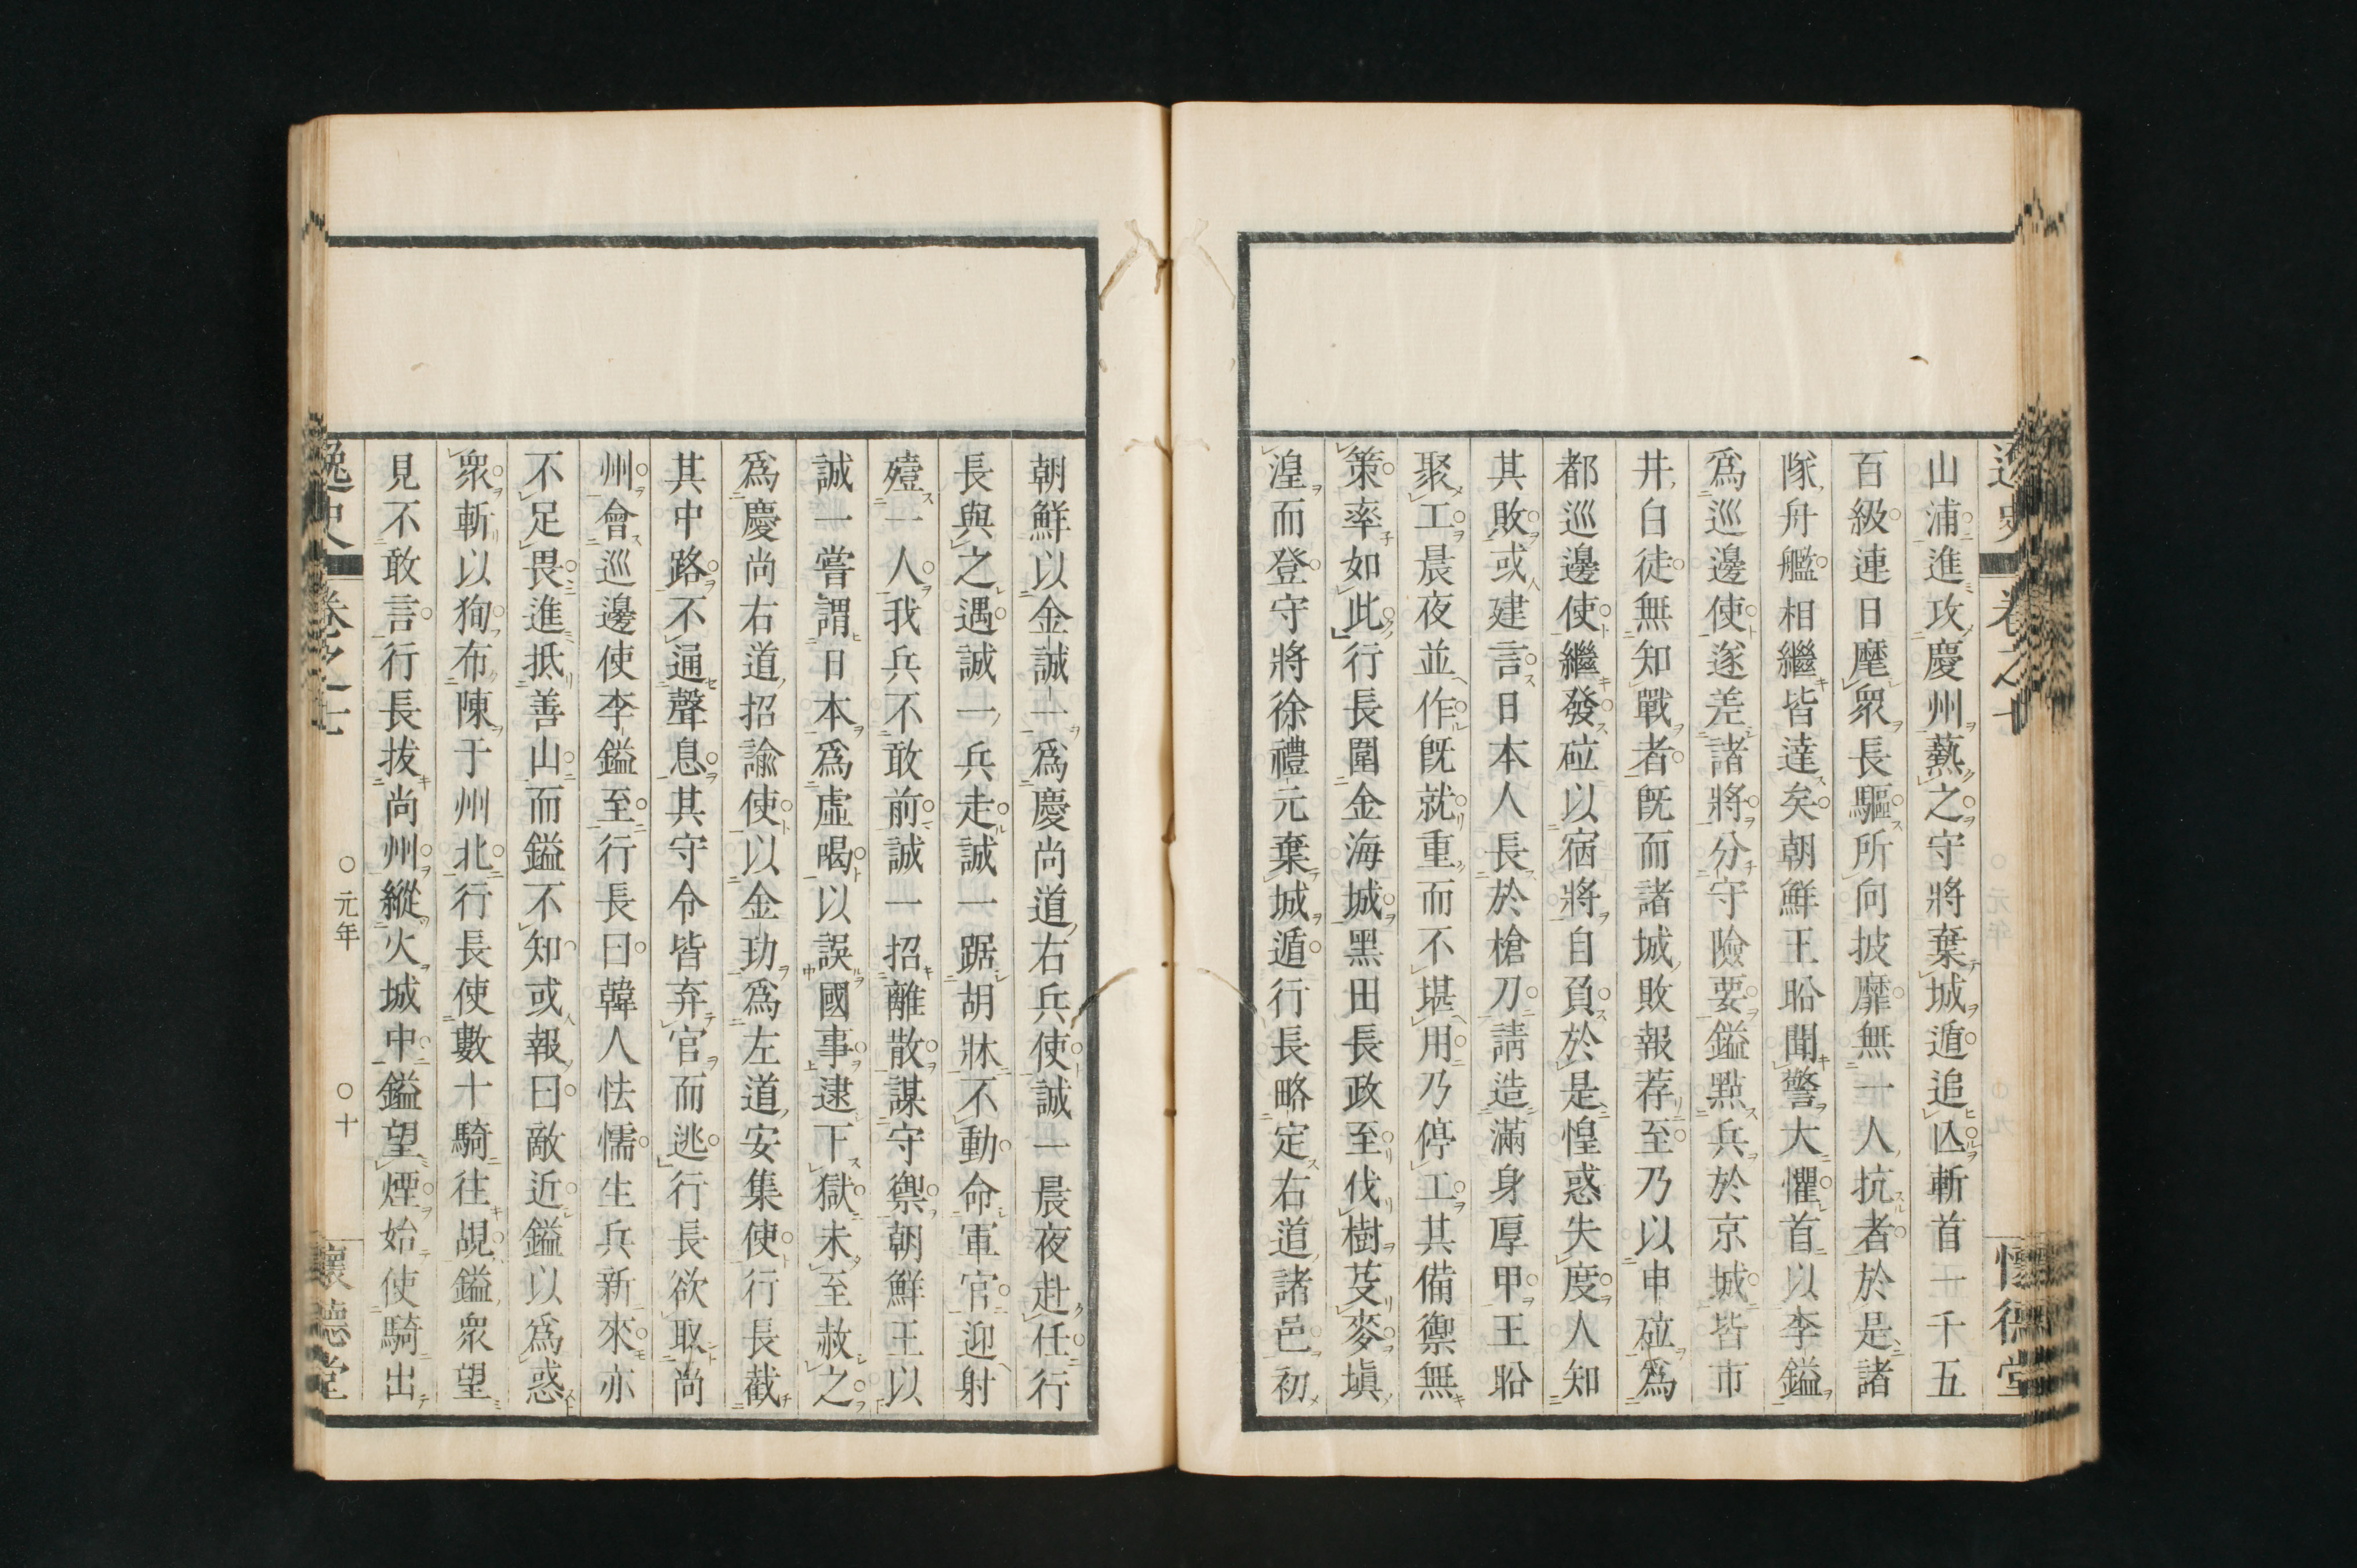 山浦進攻慶州爇之守將棄城遁追亾斬首一千五
百級連日麾衆長驅所向披靡無一人抗者於是諸
隊舟艦相繼皆達矣朝鮮王昖聞警大懼首以李鎰
爲巡邊使遂差諸將分守險要鎰點兵於京城皆市
井白徒無知戰者既而諸城敗報荐至乃以申砬爲
都巡邊使繼發砬以宿將自負於是惶惑失度人知
其敗或建言日本人長於槍刀請造滿身厚甲王昖
聚工晨夜並作既就重而不堪用乃停工其備禦無
策率如此行長圍金海城黑田長政至伐樹芟麥塡
湟而登守將徐禮元棄城遁行長略定右道諸邑初
朝鮮以金誠一爲慶尚道右兵使誠一晨夜赴任行
長與之遇誠一兵走誠一踞胡牀不動命軍官迎射
殪一人我兵不敢前誠一招離散謀守禦朝鮮王以
誠一嘗謂日本爲虛喝以誤國事逮下獄未至赦之
爲慶尚右道招諭使以金玏爲左道安集使行長截
其中路不通聲息其守令皆弃官而逃行長欲取尚
州會巡邊使李鎰至行長曰韓人怯懦生兵新來亦
不足畏進抵善山而鎰不知或報曰敵近鎰以爲惑
衆斬以狥布陳于州北行長使數十騎往覘鎰衆望
見不敢言行長拔尚州縱火城中鎰望煙始使騎出
逸史 卷之七 ○元年 ○十 懷德堂